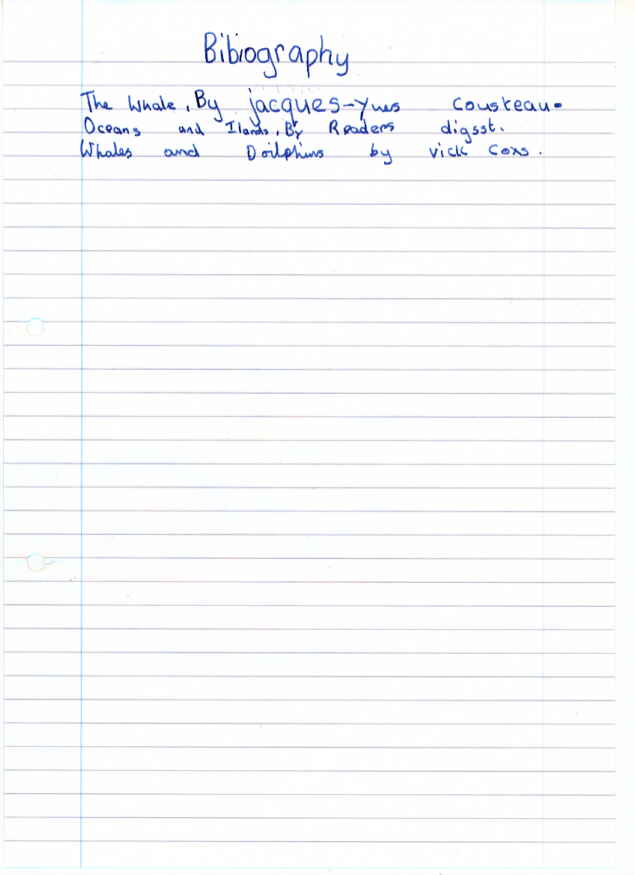 Bibiography
The Whale, By jacques-Yves Cousteau.
Oceans and Ilands, By Readers digsst.
Whales and Doilphins by vick Coxs.